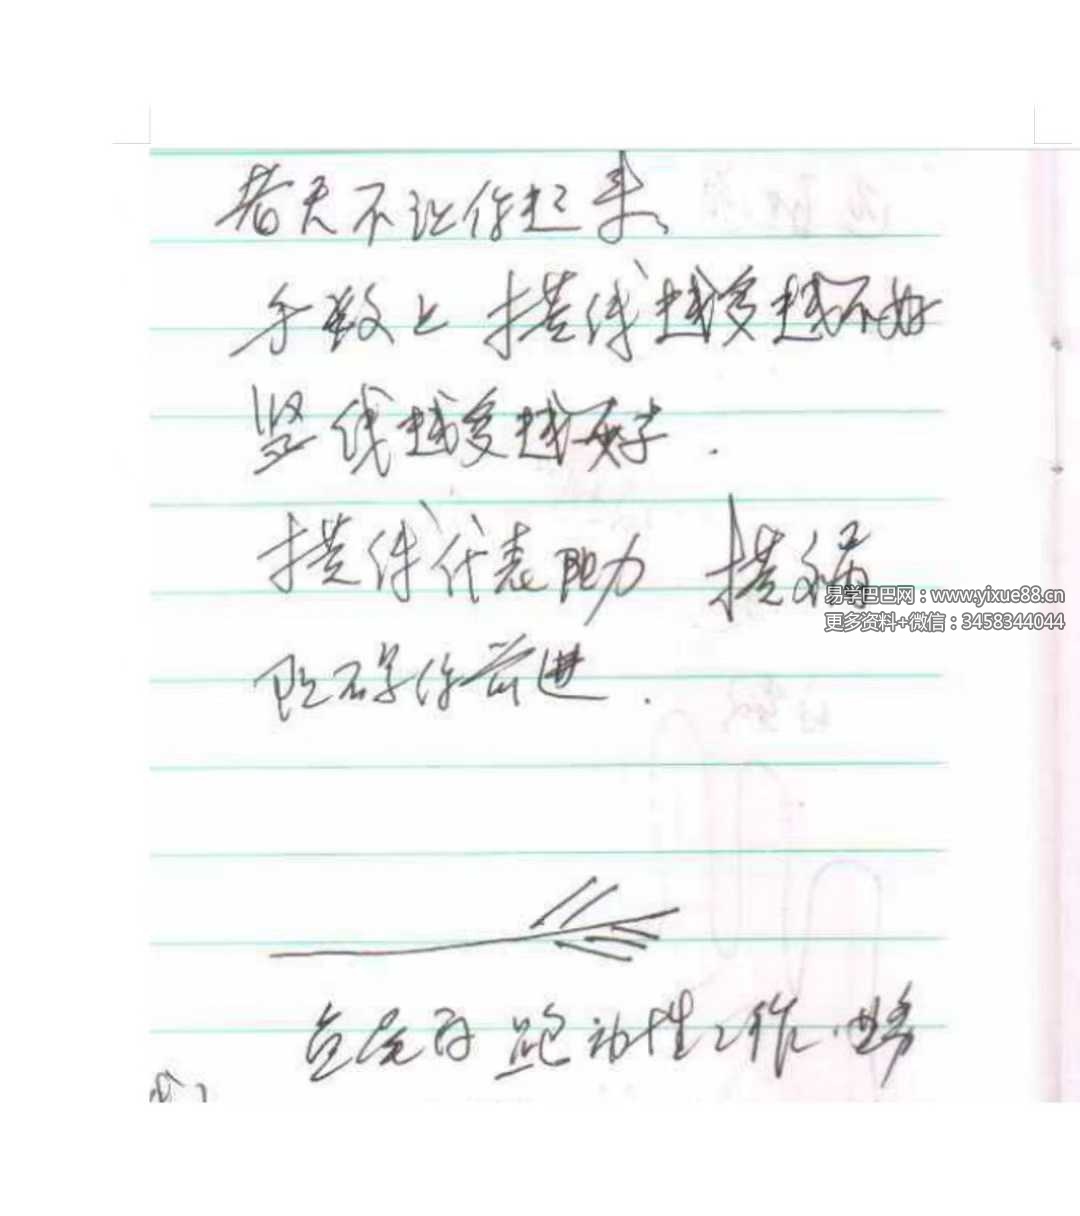 老天不让你起来
手数上 横线越多越不好
竖线越多越好.
横线代表阻力 横祸
易学巴巴网：www.yixue88.cn
更多资料+微信：3458344044
阻碍你前进.
跑动性工作.